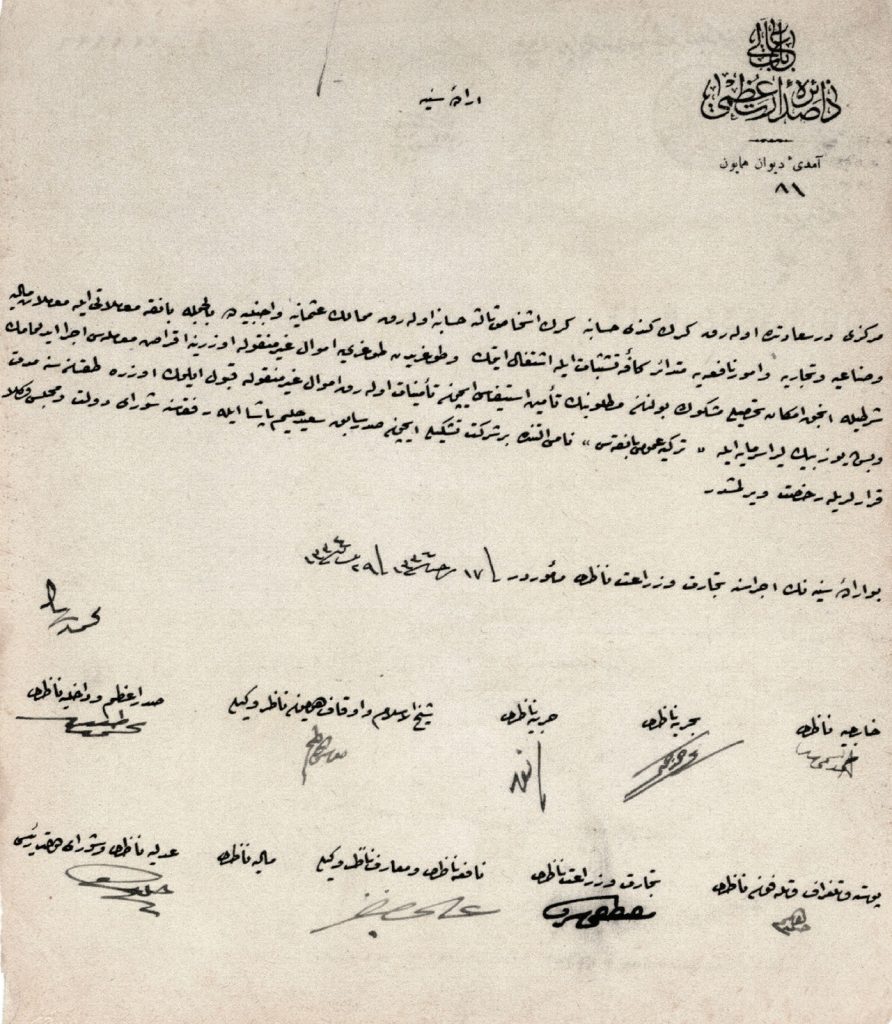 باب عالی
دائرهٔ صدارت عظمی
آمدیٔ دیوان همایون
٨١
ارادهٔ سنیه
مركزی درسعادتده اوله رق كرك كندی حسابنه كرك اشخاص ثالثه حسابنه اوله رق ممالك عثمانیه واجنبیه ده بالجمله بانقه معاملاتی ایله معاملات مالیه
وصناعیه وتجاریه وامور نافعه یه متدائر كافهٔ تشبثات ایله اشتغال ایتمك وطوغریدن طوغری یه اموال غیر منقوله اوزرینه اقراض معامله سی اجرا ایده مامك
شرطیله آنجق امكان تحصیلی مشكوك بولنان مطلوبنك تأمین استیفاسی ایچون تأمینات اوله رق اموال غیر منقوله قبول ایلمك اوزره طقسان سنه مدت
وبش یوز بیك لیرا سرمایه ایله « تركیه عمومی بانقه سی » نامی آلتنده بر شركت تشكیلی ایچون صدر سابق سعید حلیم پاشا ایله رفقاسنه شورای دولت ومجلس وكلا
قرارلریله رخصت ویرلمشدر
بو ارادهٔ سنیه نك اجراسنه تجارت وزراعت ناظری مأموردر ١٧ ١٣٣٦ ٢٩ ١٣٣٤
محمد رشاد
صدراعظم وداخلیه ناظری
شیخ الاسلام واوقاف همایون ناظر وكیلی
حربیه ناظری
بحریه ناظری
خارجیه ناظری
عدلیه ناظری وشورای دولت رئیسی
مالیه ناظری
نافعه ناظری ومعارف ناظر وكیلی
تجارت وزراعت ناظری
پوسته وتلغراف وتلفون ناظری